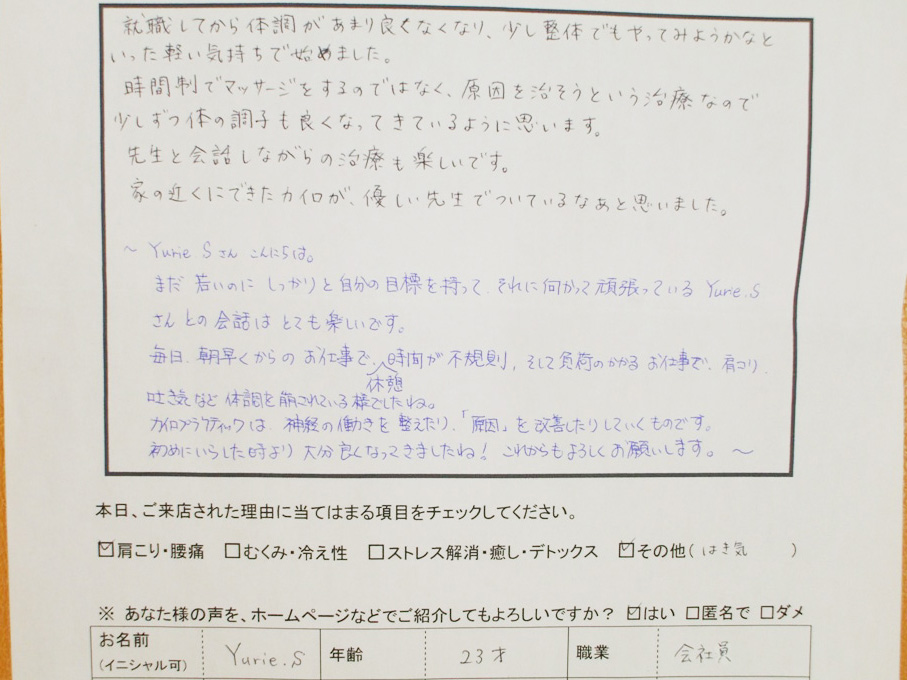 就職してから体調があまり良くなくなり、少し整体でもやってみようかなと
いった軽い気持ちで始めました。
時間制でマッサージをするのではなく、原因を治そうという治療なので
少しずつ体の調子も良くなってきているように思います。
先生と会話しながらの治療も楽しいです。
家の近くにできたカイロが、優しい先生でついているなあと思いました。
～ Yurie Sさん こんにちは。
まだ若いのに しっかりと自分の目標を持って、それに向かって頑張っている Yurie.S
さんとの会話は とても楽しいです。
毎日、朝早くからの お仕事で、休憩時間が 不規則、そして負荷のかかる お仕事で、肩コリ、
吐き気など 体調を崩されている様でしたね。
カイロプラクティックは、神経の働きを 整えたり、「原因」を改善したりしていくものです。
初めにいらした時より 大分良くなってきましたね! これからもよろしくお願いします。～
本日、ご来店された理由に当てはまる項目をチェックしてください。
☑肩こり・腰痛 □むくみ・冷え性 □ストレス解消・癒し・デトックス ☑その他(はき気 )
※ あなた様の声を、ホームページなどでご紹介してもよろしいですか? ☑はい □匿名で □ダメ
お名前 (イニシャル可) Yurie.S 年齢 23才 職業 会社員